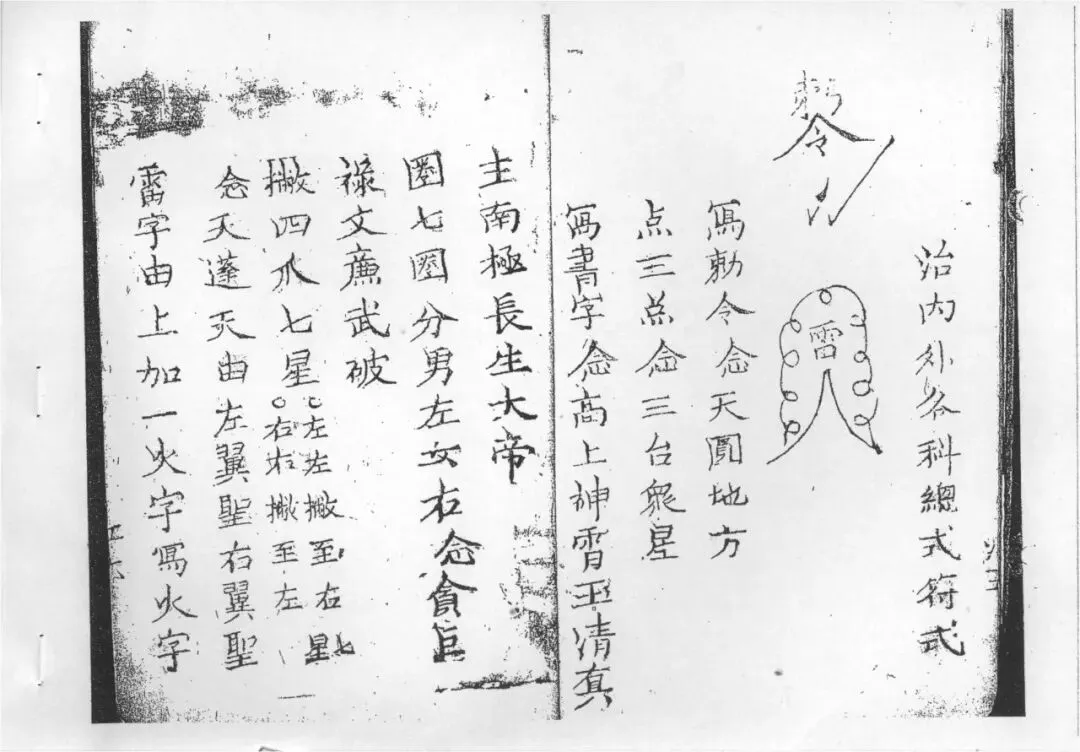 治内外各科總式符式
勅令
雷
寫勅令念天圓地方
点三点念三台眾星
寫書字念高上神霄玉清真
主南極長生大帝
圈七圈分男左女右念貪巨
祿文廉武破
撇四爪七星
左左撇至右
右右撇至左
七星
念天蓬天由左翼聖右翼聖
雷字由上加一火字寫火字